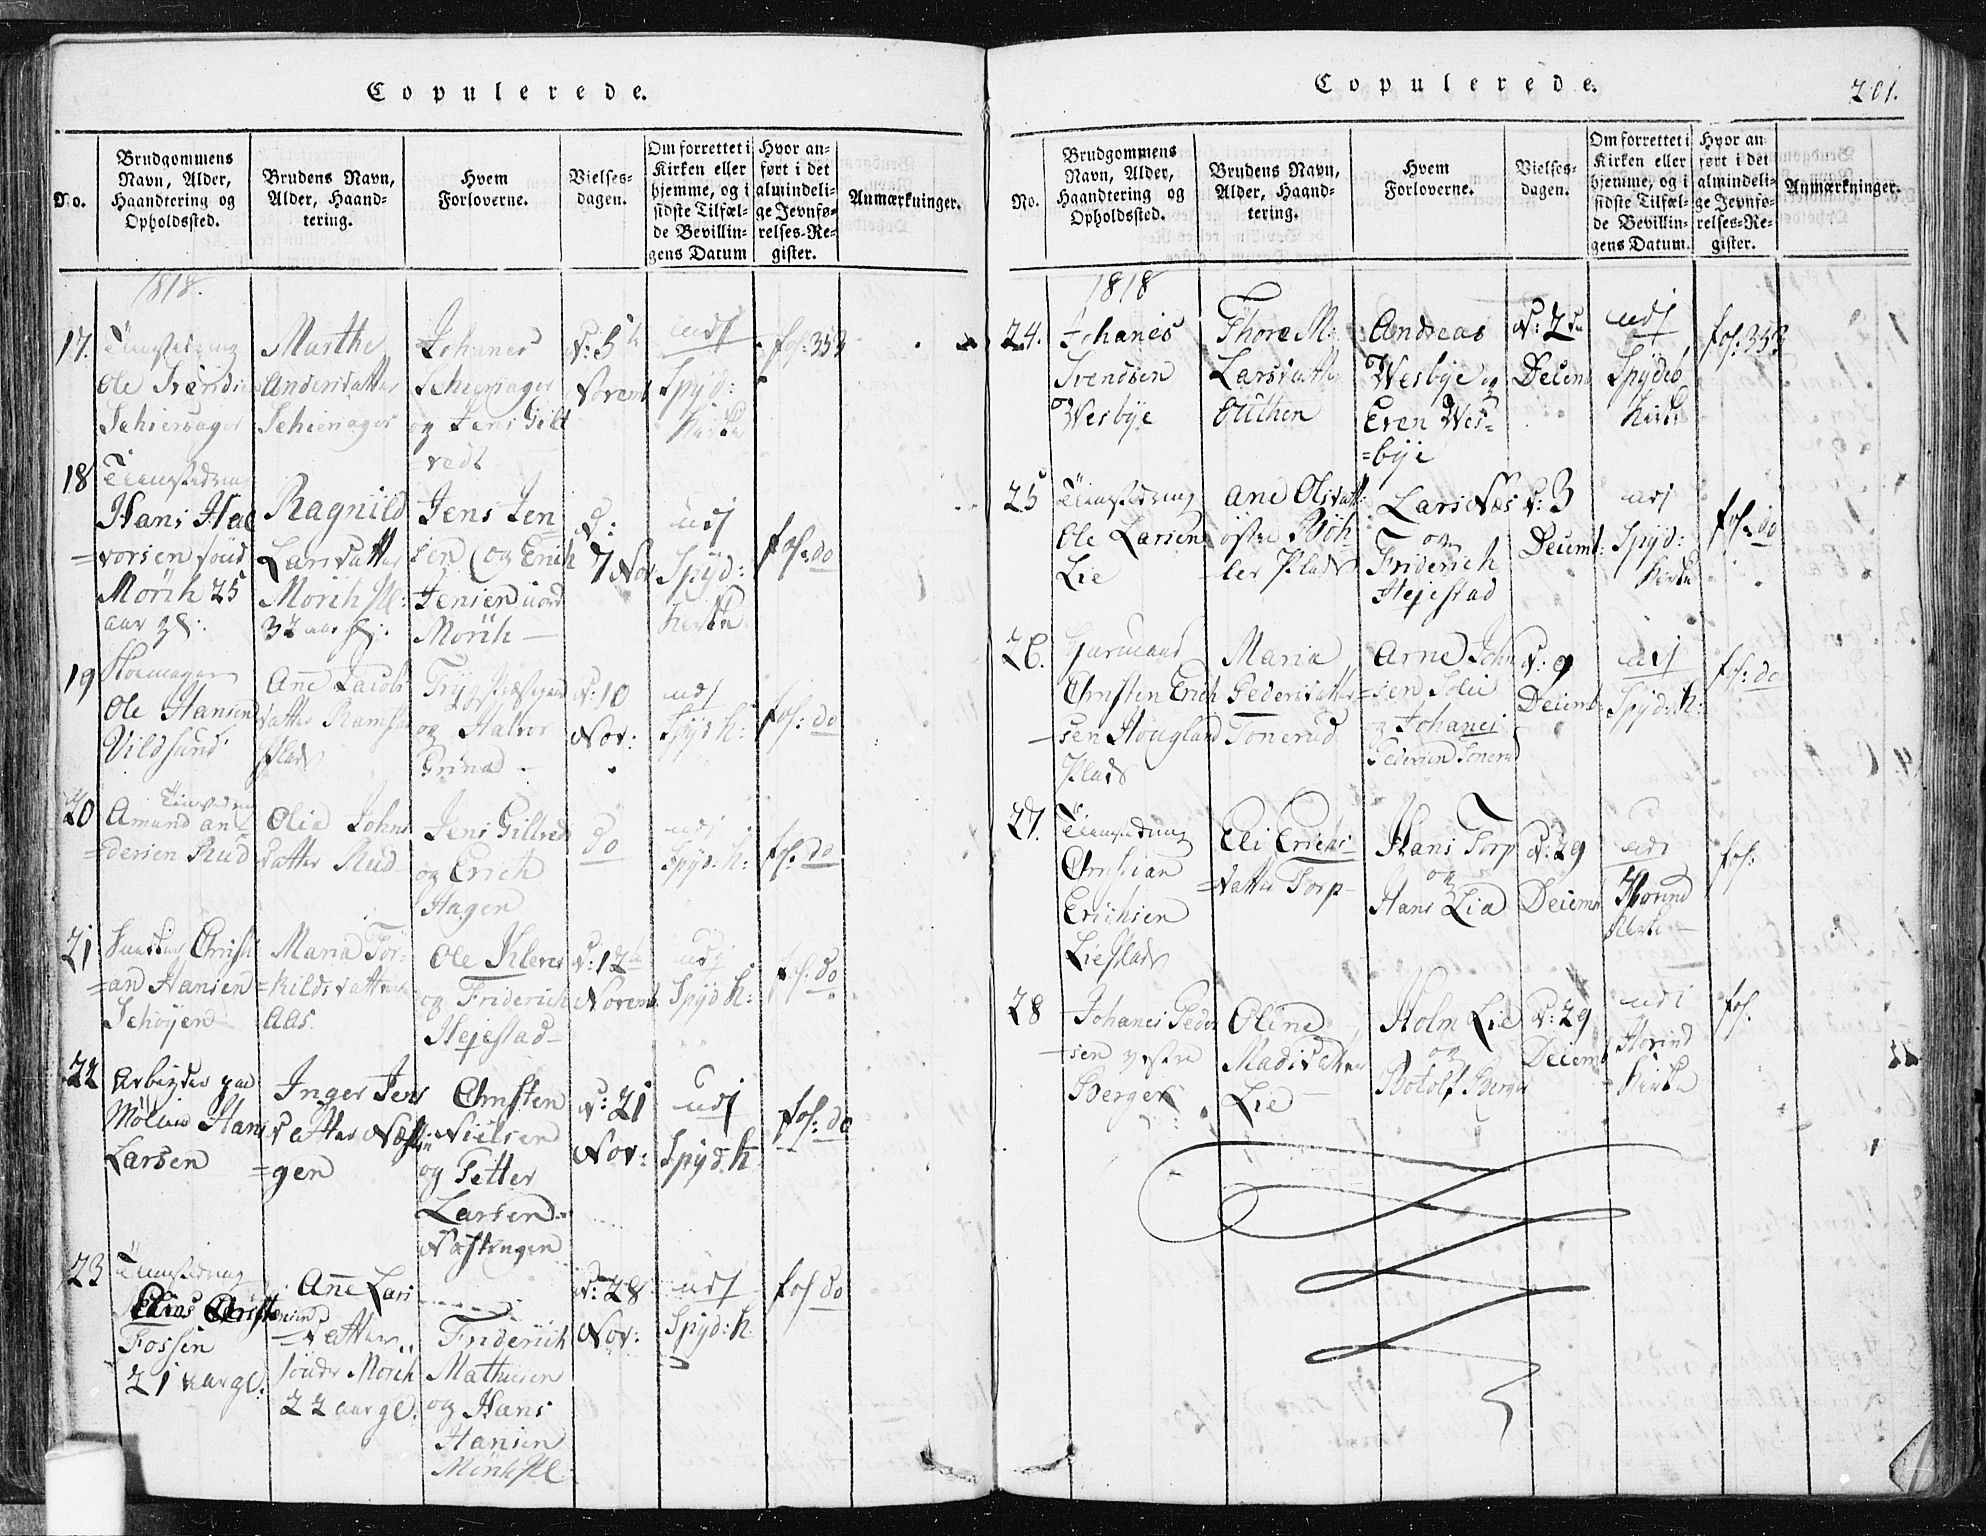 Copulerede.
No.
Brudgommens
Navn, Alder,
Haandtering og
Opholdssted.
Brudens Navn,
Alder, Haand-
tering.
Hvem
Forloverne.
Vielses-
dagen.
Om forrettet i
Kirken eller
hjemme, og i
sidste Tilfæl-
de Bevillin-
gens Datum
Hvor an-
ført i det
almindeli-
ge Jevnfø-
relses-Re-
gister.
Anmærkninger.
1818.
17.
Ole
Schiersager
Marthe
Andersdatter
Schiersager
Johanes
Schiersager
og Jens Gilt
vedt
d: 5
Novemb
udj
Spyd:
Kirke
fol: 353
18
Hans Hal
=vorsen
Mörch 25
aar gl:
Ragnild
Larsdatter
Mörch
32 aar gl:
Jens Jen
sen og Erich
Jensen nord
Mörch
d:
7 Nov
udj
Spyd:
Kirke
fol: do
19
Ole Hansen
Vildsund
Ane Jacobs
datter
plads
og Halvor
Grinad
d: 10
Nov:
udj
Spyd K:
fol: do
20
Amund An
=dersen Rud
Olia Johns
datter Rud
Jens Gillved
og Erich
Hagen
do
udj
Spyd: K:
fol: do
21
Christi
=an Hansen
Schöyen
Maria Tor
=kildsdatter
Aas.
Ole Klerus
og Friderich
Hejestad
d: 12
Novemb
udj
Spyd K:
fol. do
22
Arbeyder paa
Hans
Larsen
Inger Jens
datter Næstin
=gen
Christen
Nielsen
og Petter
Larsen
Næstingen
d: 21
Nov:
udj
Spyd: K
fol: do
23
Tienstedreng
Christensen
Fossen
21 aar gl:
Ane Lars
datter
sönder Mörch
22 aar gl:
Friderich
Mathiesen
og Hans
Hansen
d: 28
Nov:
udj
Spyd: K.
fol do
Copulerede.
201.
No.
Brudgommens
Navn, Alder,
Haandtering og
Opholdssted.
Brudens Navn,
Alder, Haand-
tering.
Hvem
Forloverne.
Vielses-
dagen.
Om forrettet i
Kirken eller
hjemme, og i
sidste Tilfæl-
de Bevillin-
gens Datum.
Hvor an-
ført i det
almindeli-
ge Jevnfø-
relses-Re-
gister.
Anmærkninger.
1818
24.
Johanes
Svendsen
Wesbye
Thore M:
Larsdatter
Andreas
Wesbye og
Even Wes-
=bye
d: 2
Decemb
udj
Spydeb
Kirke
fol: 353
25
Tienstedreng
Ole Larsen
Lie
Ane Olsdatt:
östre Böh
ler Plads
Lars Næs
og
Friderich
Hejestad
d: 3
Decemb:
udj
Spyd:
Kirke
fol: do
26.
Gaarmand
Christen Erich
=sen Hougland
Plads
Maria
Pedersdatter
Tonerud
Arne John
=sen Solie
og Johanes
Pedersen Tonerud
d: 9
Decemb:
udj
Spyd: K:
fol: do
27.
Tienstedreng
Christian
Erichsen
Lie Plads
Eli Erichs-
=datter Torp
Hans Torp
og
Hans Lia
d: 29
Decemb
udj
Hovind
Kirke
fol:
28
Johanes Peder
=sen vestre
Berger
Oline
Madsdatter
Lie
Holm Lie
og
Botolf Berger
d: 29
Decemb
udj
Hovind
Kirke
fol.